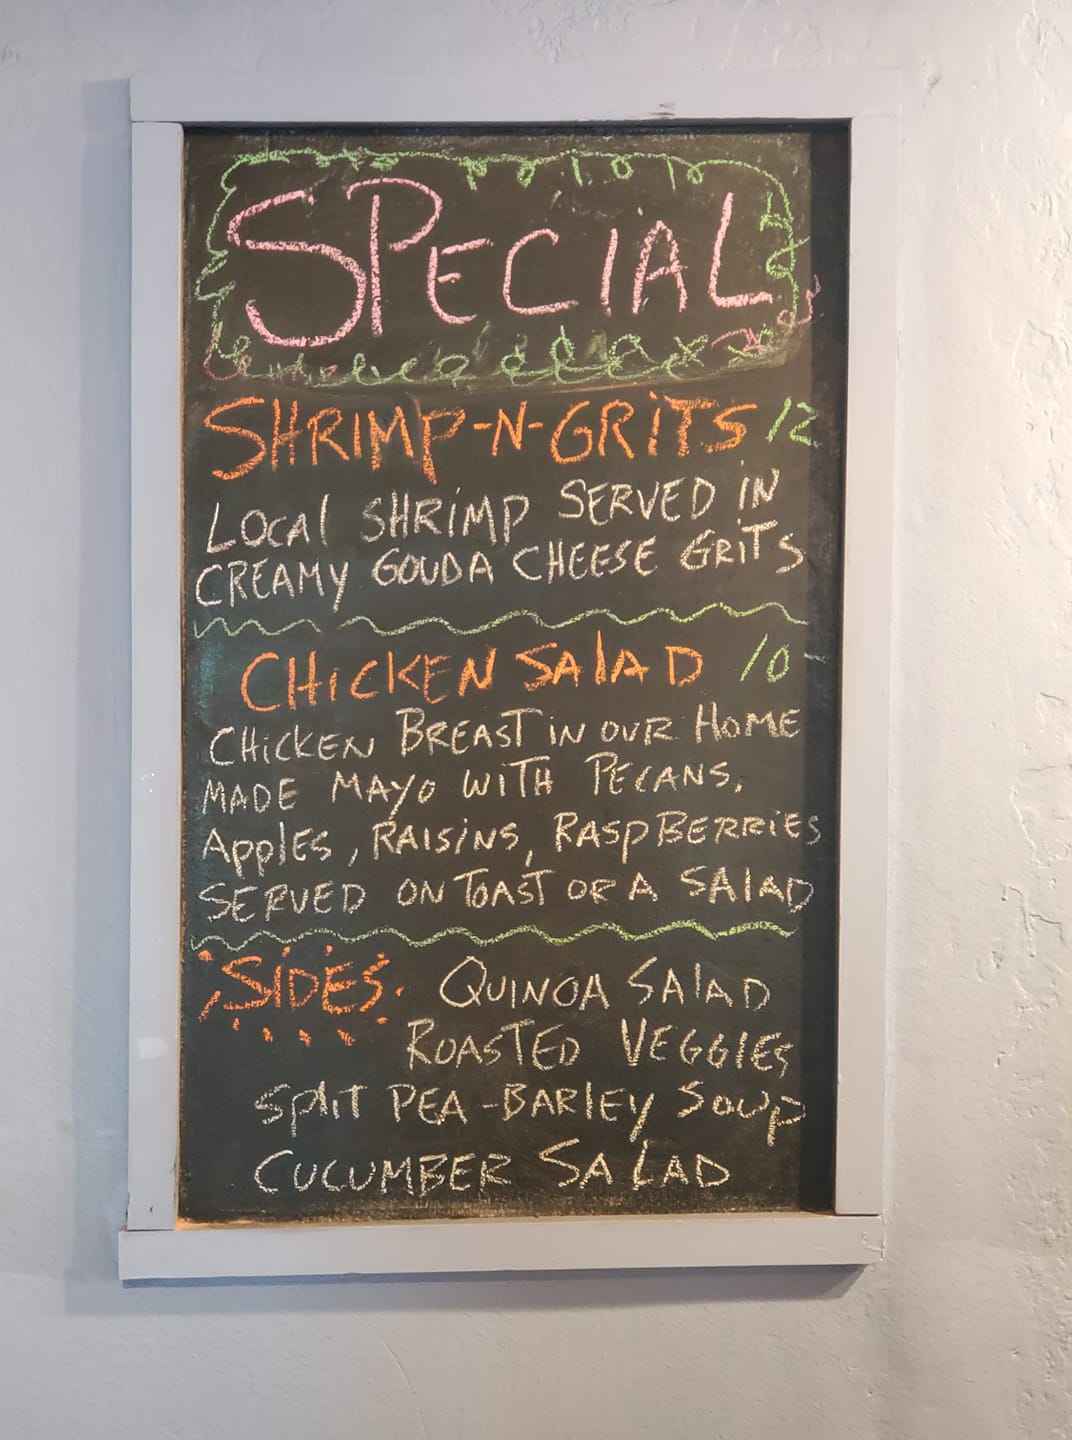 SPECIAL
SHRIMP-N-GRiTS 12
LOCAl SHRiMP SERVED iN
CREAMY GOUDA CHEESE GRiTS
CHiCKEN SAlAD 10-
CHiCKEN BREAST iN OUR HOME
MADE MAYO WiTH PECANS,
Apples, RAISiNS, RASpBERRiES
SERVED ON TOAST OR A SAlAD
SiDES QUiNOA SAlAD
ROASTED VEGGIES
Split PEA-BARlEy Soup
CUCUMBER SALAD